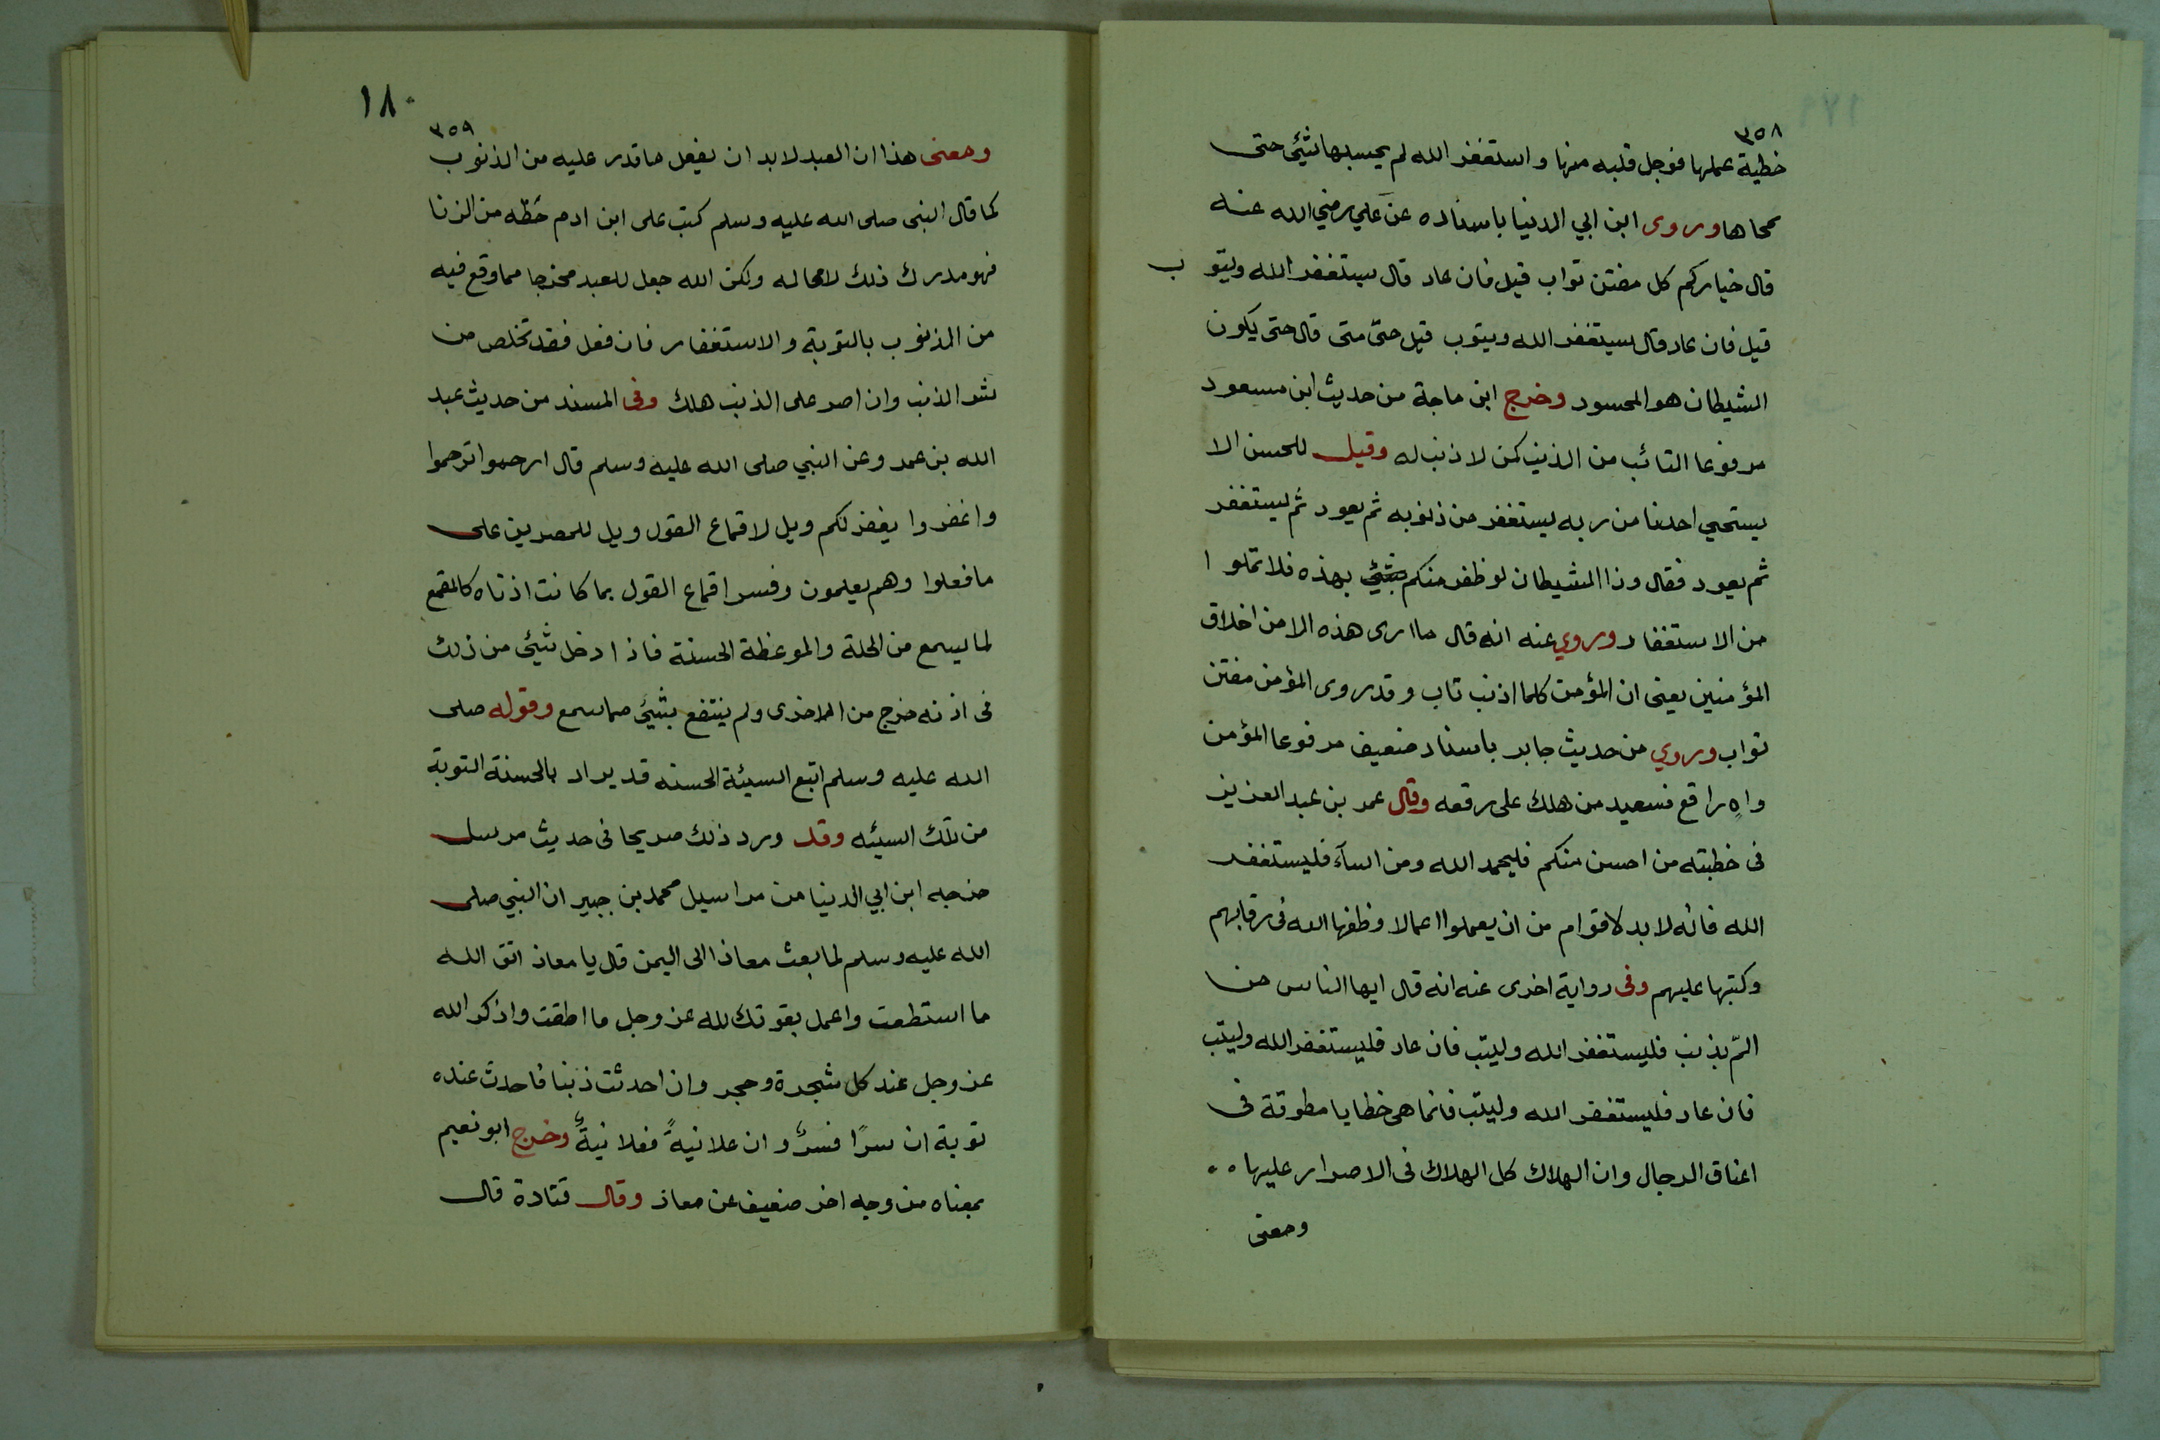 ٣٥٨
خطية عملها فوجل قلبه منها واستغفر الله لم يحبسها شيئ حتى
محاها وروى ابن ابي الدنيا باسناده عن علي رضي الله عنه
قال خياركم كل مفتن تواب قيل فان عاد قال يستغفر الله ويتوب
قيل فان عاد قال يستغفر الله ويتوب قيل حتى متى قال حتى يكون
الشيطان هو المحسور وخرج ابن ماجة من حديث ابن مسعود
مرفوعا التائب من الذنب كمن لا ذنب له وقيل للحسن الا
يستحيي احدنا من ربه يستغفر من ذنوبه ثم يعود ثم يستغفر
ثم يعود فقال ود الشيطان لو ظفر منكم بهذه فلا تملوا
من الاستغفار وروي عنه انه قال ما ارى هذه الا من اخلاق
المؤمنين يعنى ان المؤمن كلما اذنب تاب وقد روى المؤمن مفتن
تواب وروي من حديث جابر باسناد ضعيف مرفوعا المؤمن
واهِ راقع فسعيد من هلك على رقعه وقال عمر بن عبد العزيز
فى خطبته من احسن منكم فليحمد الله ومن اساء فليستغفر
الله فانه لا بد لاقوام من ان يعملوا اعمالا وظفها الله فى رقابهم
وكتبها عليهم وفى رواية اخرى عنه انه قال ايها الناس من
المّ بذنب فليستغفر الله وليتب فان عاد فليستغفر الله وليتب
فان عاد فليستغفر الله وليتب فانما هى خطايا مطوقة فى
اعناق الرجال وان الهلاك كل الهلاك فى الاصرار عليها
ومعنى
١٨٠
٣٥٩
ومعنى هذا ان العبد لا بد ان يفعل ما قدر عليه من الذنوب
كما قال النبى صلى الله عليه وسلم كتب على ابن ادم حَظّه من الزنا
فهو مدرك ذلك لامحالة ولكن الله جعل للعبد مخرجا مما وقع فيه
من الذنوب بالتوبة والاستغفار فان فعل فقد تخلص من
شر الذنب وان اصر على الذنب هلك وفى المسند من حديث عبد
الله بن عمر وعن النبي صلى الله عليه وسلم قال ارحموا ترحموا
واغفروا يغفر لكم ويل لاقماع القول ويل للمصرين على
ما فعلوا وهم يعلمون وفسر اقماع القول بما كانت اذناه كالقمع
لما يسمع من الحلة والموعظة الحسنة فاذا دخل شيئ من ذلك
فى اذنه خرج من الاخرى ولم ينتفع بشيئ مما سمع وقوله صلى
الله عليه وسلم اتبع السيئة الحسنه قد يراد بالحسنة التوبة
من تلك السيئه وقد ورد ذلك صريحا فى حديث مرسل
خرجه ابن ابي الدنيا من مراسيل محمد بن جبير ان النبي صلى
الله عليه وسلم لما بعث معاذا الى اليمن قال يا معاذ اتق الله
ما استطعت واعمل بقوتك لله عز وجل ما اطقت واذكر الله
عز وجل عند كل شجرة وحجر وان احدثت ذنبا فاحدث عنده
توبة ان سرًا فسرٌ وان علانيةً فعلانيةٌ وخرج ابو نعيم
بمعناه من وجه اخر ضعيف عن معاذ وقال قتادة قال